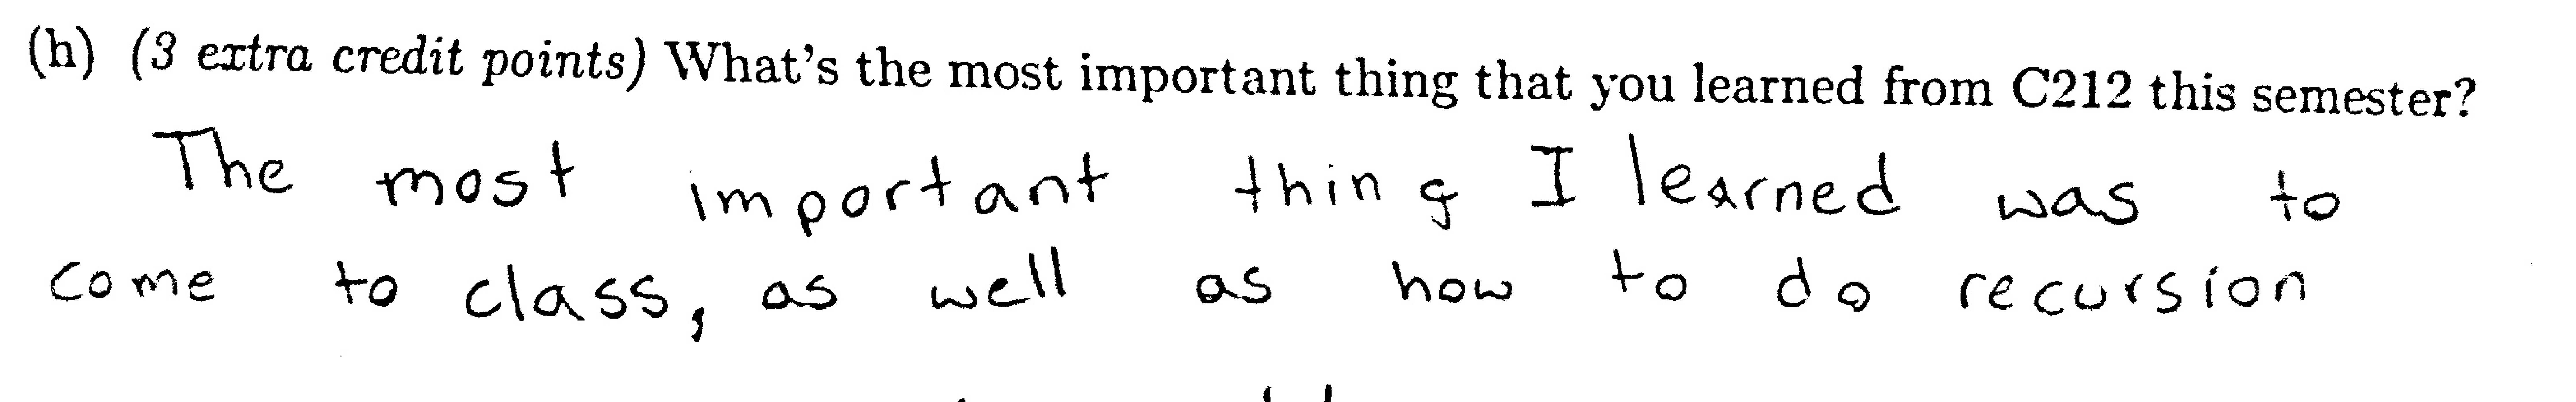 (h) (3 extra credit points) What's the most important thing that you learned from C212 this semester?
The most important thing I learned was to
come to class, as well as how to do recursion